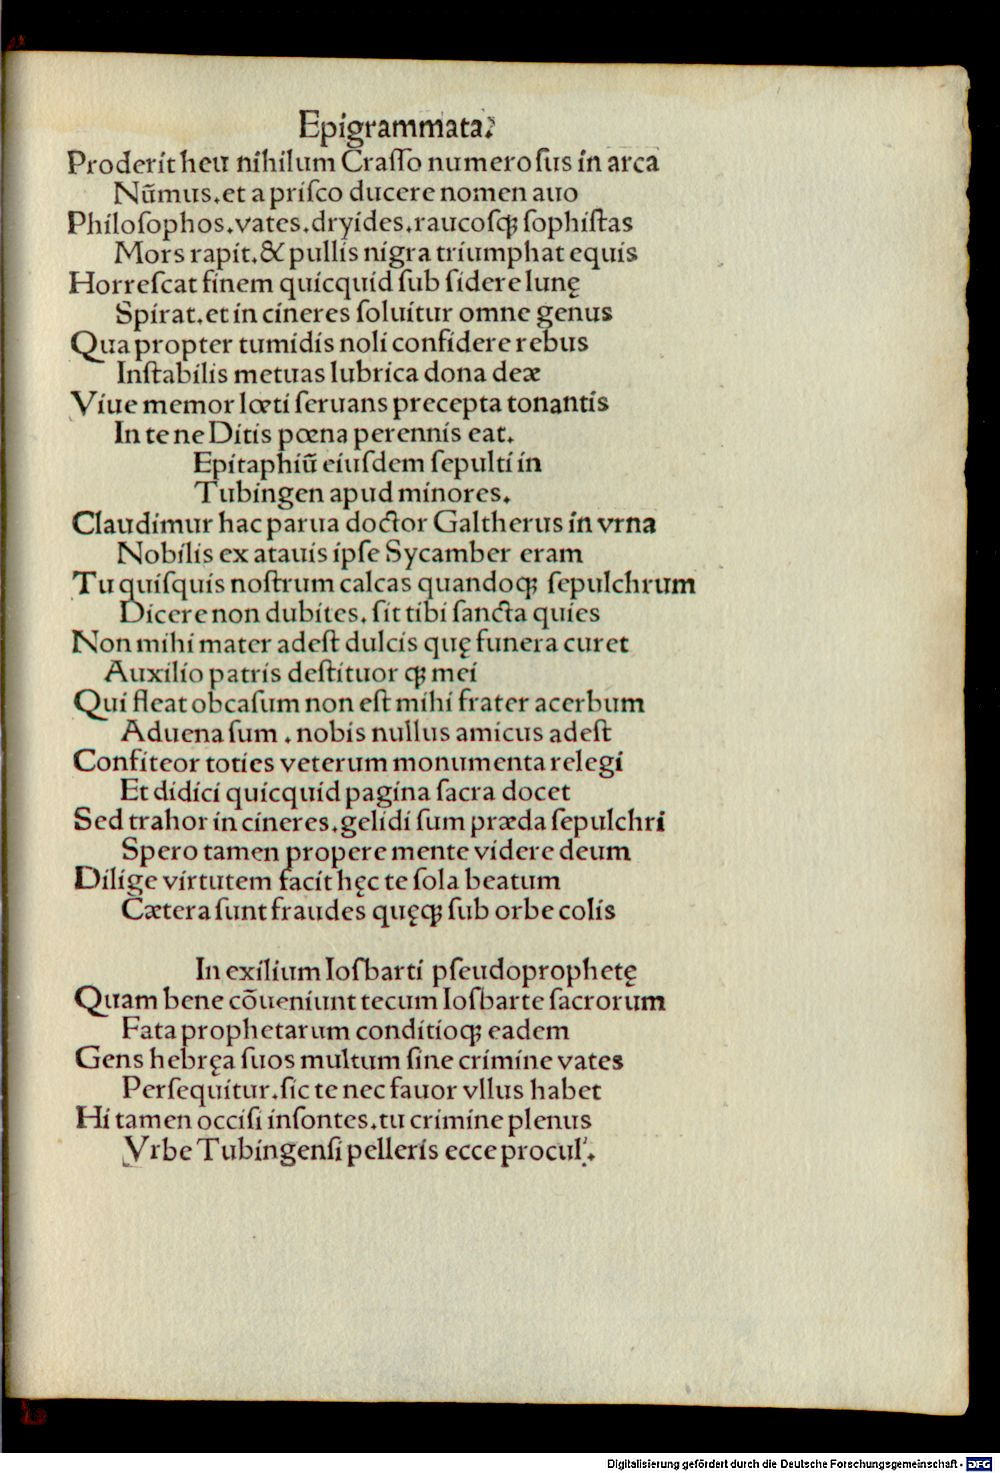 Epigrammata.
Proderit heu nihilum Craſſo numeroſus in arca
Nūmus.et a priſco ducere nomen auo
Philoſophos.vates.dryides.raucoſqꝫ ſophiſtas
Mors rapit.& pullis nigra triumphat equis
Horreſcat finem quicquid ſub ſidere lunę
Spirat.et in cineres ſoluitur omne genus
Qua propter tumidis noli confidere rebus
Inſtabilis metuas lubrica dona deæ
Viue memor lœti ſeruans precepta tonantis
In te ne Ditis pœna perennis eat.
Epitaphiū eiuſdem ſepulti in
Tubingen apud minores.
Claudimur hac parua doctor Galtherus in vrna
Nobilis ex atauis ipſe Sycamber eram
Tu quiſquis noſtrum calcas quandoqꝫ ſepulchrum
Dicere non dubites. ſit tibi ſancta quies
Non mihi mater adeſt dulcis quę funera curet
Auxilio patris deſtituor qꝫ mei
Qui fleat obcaſum non eſt mihi frater acerbum
Aduena ſum . nobis nullus amicus adeſt
Confiteor toties veterum monumenta relegi
Et didici quicquid pagina ſacra docet
Sed trahor in cineres.gelidi ſum præda ſepulchri
Spero tamen propere mente videre deum
Dilige virtutem facit hęc te ſola beatum
Cætera ſunt fraudes quęqꝫ ſub orbe colis
In exilium Ioſbarti pſeudoprophetę
Quam bene cōueniunt tecum Ioſbarte ſacrorum
Fata prophetarum conditioqꝫ eadem
Gens hebręa ſuos multum ſine crimine vates
Perſequitur.ſic te nec fauor vllus habet
Hi tamen occiſi inſontes.tu crimine plenus
Vrbe Tubingenſi pelleris ecce procul.
Digitalisierung gefördert durch die Deutsche Forschungsgemeinschaft - DFG